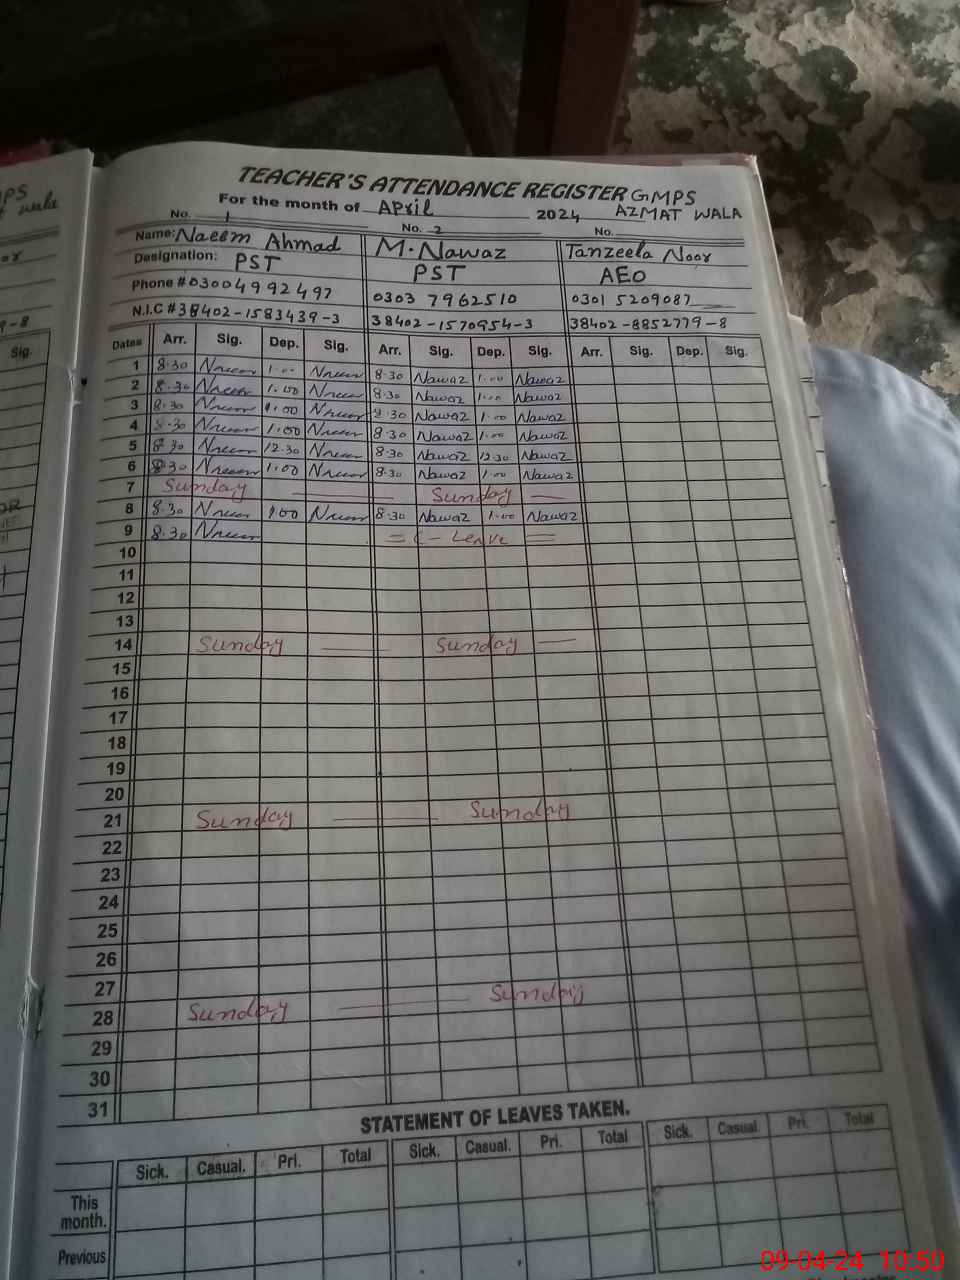 TEACHER'S ATTENDANCE REGISTER GMPS
For the month of April 2024 AZMAT WALA
No. 1 No. 2 No.
Name: Naeem Ahmad M. Nawaz Tanzeela Noor
Designation: PST PST AEO
Phone # 03004992497 0303 7962510 0301 5209087
N.I.C # 38402-1583439-3 38402-1570954-3 38402-8852779-8
Dates Arr. Sig. Dep. Sig. Arr. Sig. Dep. Sig. Arr. Sig. Dep. Sig.
1 8.30 1.00 8.30 Nawaz 1.00 Nawaz
2 8.30 1.00 8.30 Nawaz 1.00 Nawaz
3 8.30 1.00 8.30 Nawaz 1.00 Nawaz
4 8.30 1.00 8.30 Nawaz 1.00 Nawaz
5 8.30 12.30 8.30 Nawaz 12.30 Nawaz
6 8.30 1.00 8.30 Nawaz 1.00 Nawaz
7 Sunday Sunday
8 8.30 1.00 8.30 Nawaz 1.00 Nawaz
9 8.30 = C - Leave =
10
11
12
13
14 Sunday Sunday
15
16
17
18
19
20
21 Sunday Sunday
22
23
24
25
26
27
28 Sunday Sunday
29
30
31
STATEMENT OF LEAVES TAKEN.
Sick. Casual. Pri. Total Sick. Casual. Pri. Total Sick. Casual. Pri. Total
This month.
Previous
09-04-24 10:50